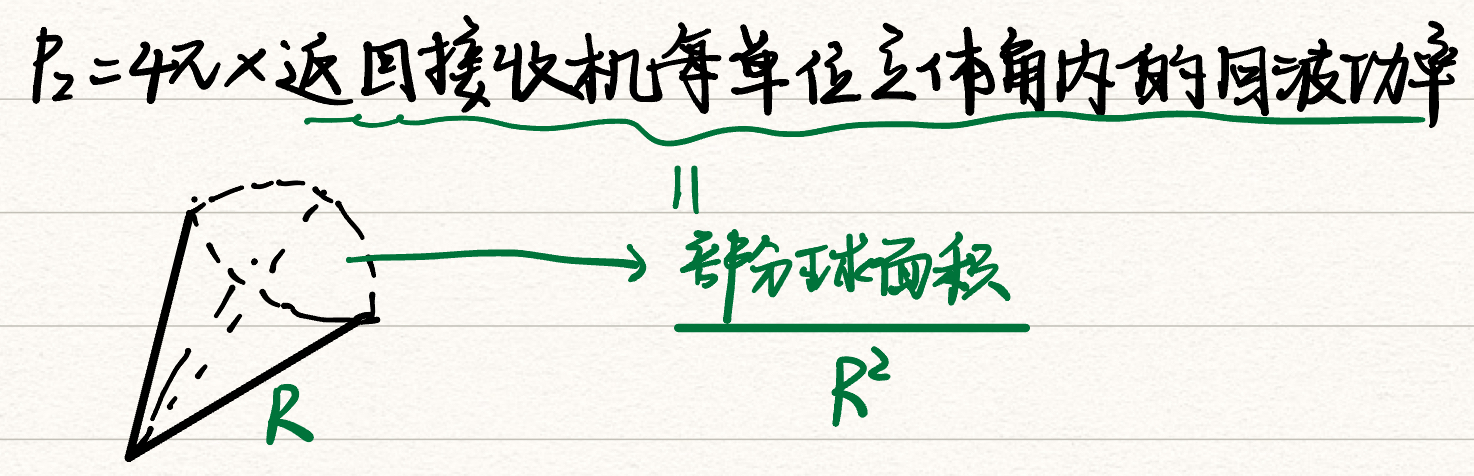 P₂=4π×返回接收机每单位立体角内的回波功率
=
部分球面积
R²
R